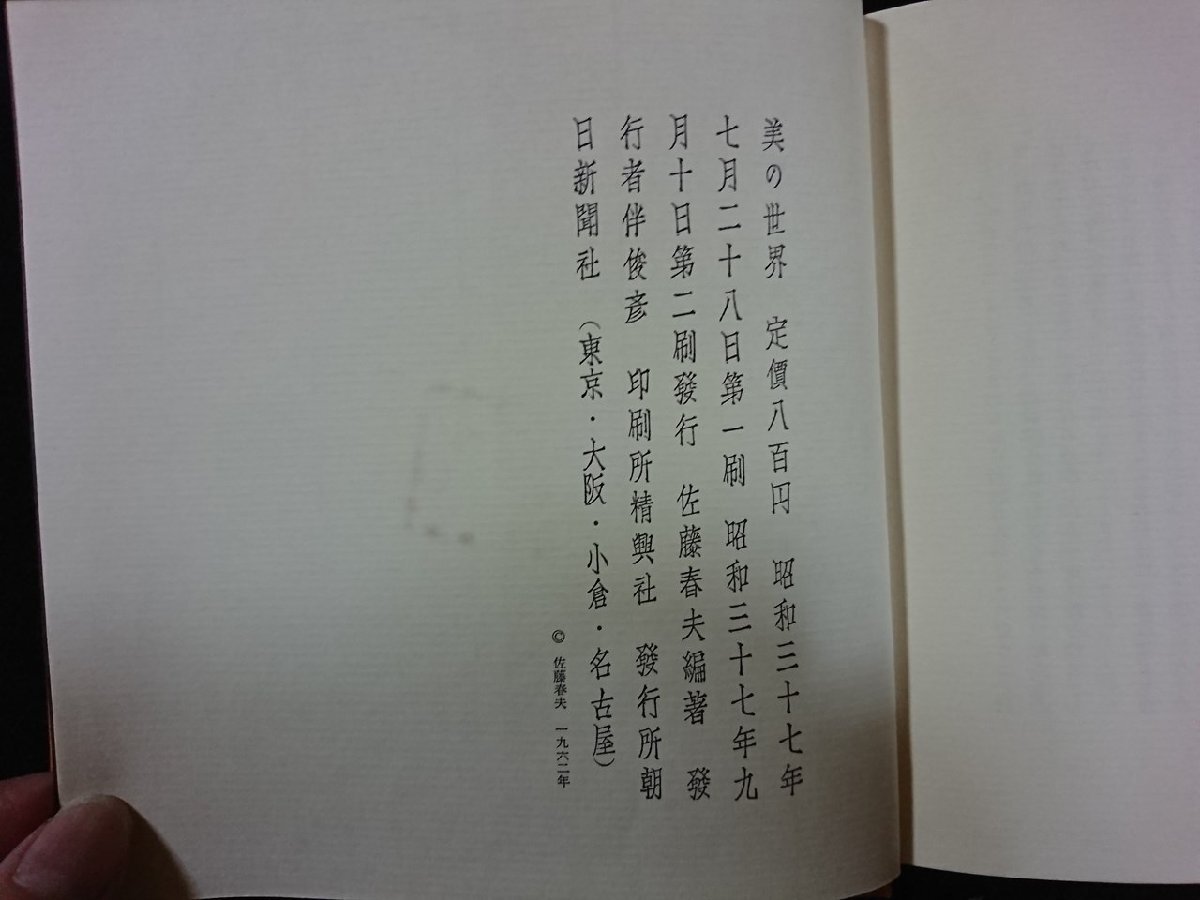 美の世界　定價八百円　昭和三十七年
七月二十八日第一刷　昭和三十七年九
月十日第二刷發行　佐藤春夫編著　發
行者伴俊彦　印刷所精興社　發行所朝
日新聞社　（東京・大阪・小倉・名古屋）
© 佐藤春夫　一九六二年